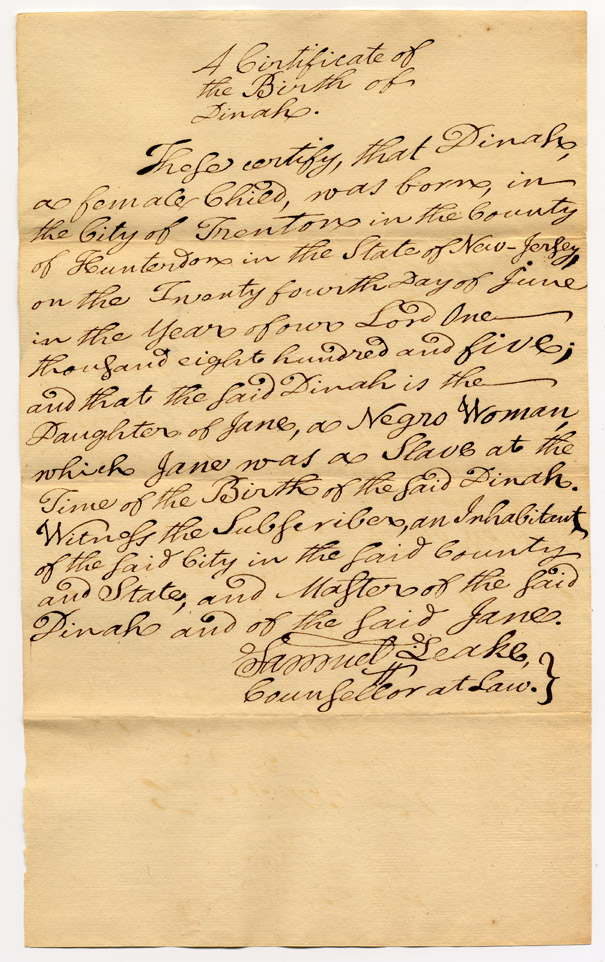 A Certificate of
the Birth of
Dinah.
These certify, that Dinah,
a female Child, was born, in
the City of Trenton in the County
of Hunterdon in the State of New-Jersey,
on the Twenty fourth Day of June
in the Year of our Lord One
thousand eight hundred and five;
and that the said Dinah is the
Daughter of Jane, a Negro Woman,
which Jane was a Slave at the
Time of the Birth of the said Dinah.
Witness the Subscriber, an Inhabitant
of the said City in the said County
and State, and Master of the said
Dinah and of the said Jane.
Samuel Leake,
Counsellor at Law.